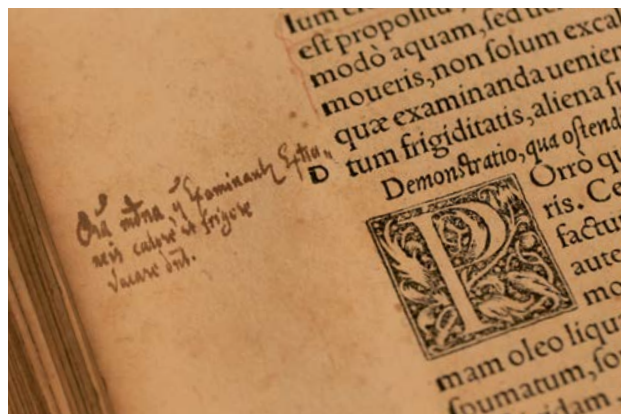 est propositu
modò aquam, sed
moueris, non solum excal
quæ examinanda uenien
tum frigiditatis, aliena
D
Demonstratio, qua ostendi
POrrò qu
ris. Ce
factur
aute
mo
mam oleo liqu
spumatum, for
idam
Examinantr Extra„
neis calore et frigore
vacare